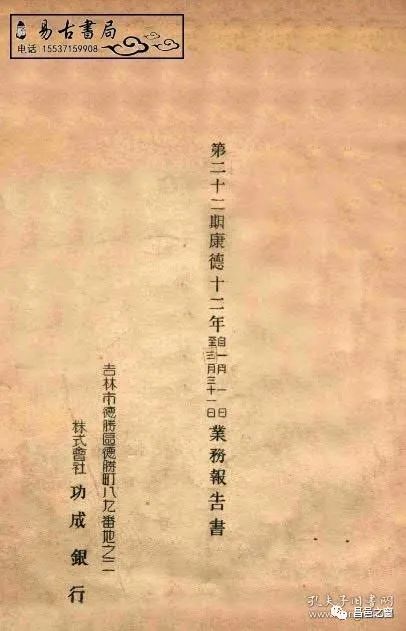 易古書局
电话 15537159908
第二十二期康德十二年自一月一日至三月三十一日業務報告書
吉林市德勝區德勝町八九番地之二
株式會社 功成銀行
孔夫子旧书网
昌邑之窗